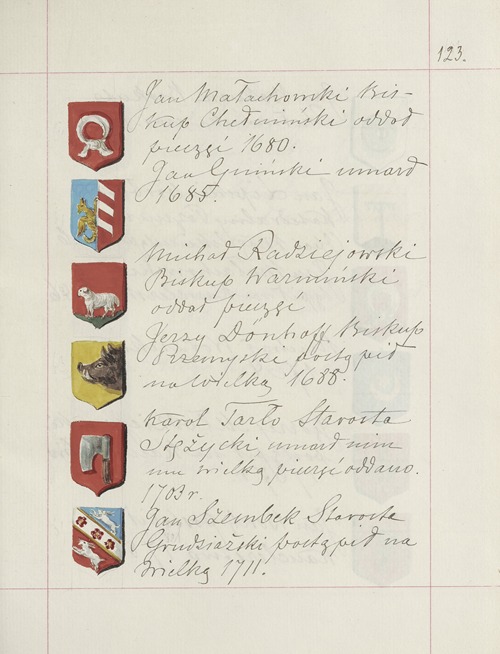 123.
Jan Małachowski Bis-
kup Chełmiński oddał
pieczęć 1680.
Jan Gniński umarł
1685.
Michał Radziejowski
Biskup Warmiński
oddał pieczęć
Jerzy Dönhoff Biskup
Przemyski postąpił
na wielką 1688.
Karol Tarło Starosta
Stężycki, umarł nim
mu wielką pieczęć oddano.
1703 r.
Jan Szembek Starosta
Grudziąski postąpił na
wielką 1711.